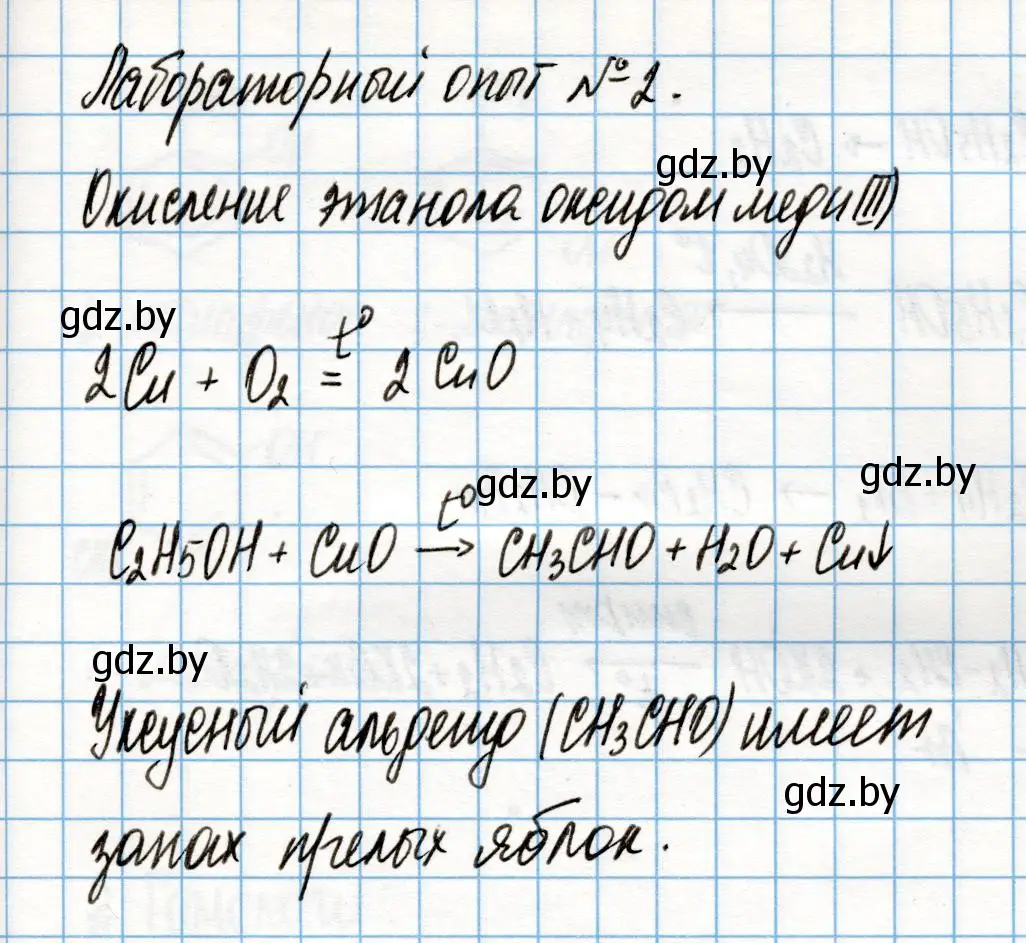 Лабораторный опыт № 2.
gdz.by
Окисление этанола оксидом меди (II)
gdz.by
2Cu + O₂ =^{t°} 2 CuO
gdz.by
gdz.by
C₂H₅OH + CuO →^{t°} CH₃CHO + H₂O + Cu↓
gdz.by
Уксусный альдегид (CH₃CHO) имеет
gdz.by
запах прелых яблок.